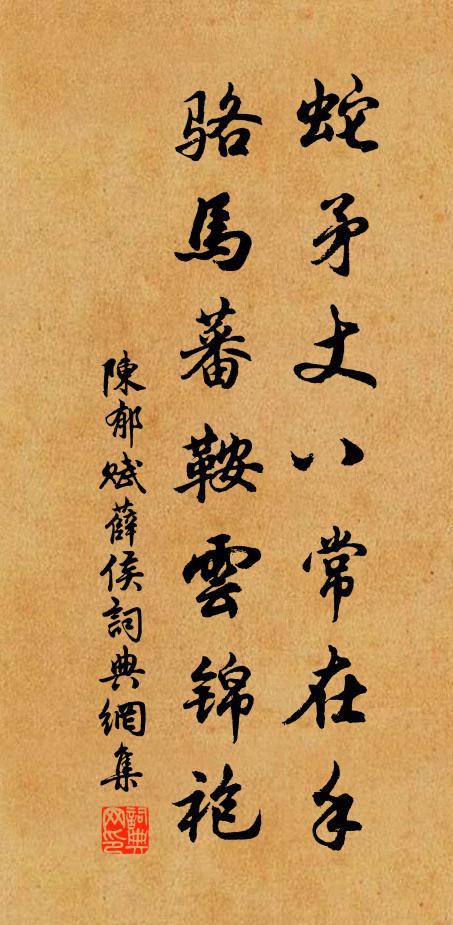 蛇矛丈八常在手
駱馬蕃鞍雲锦袍
陳郁賦薛侯詞典網集
詞典网印